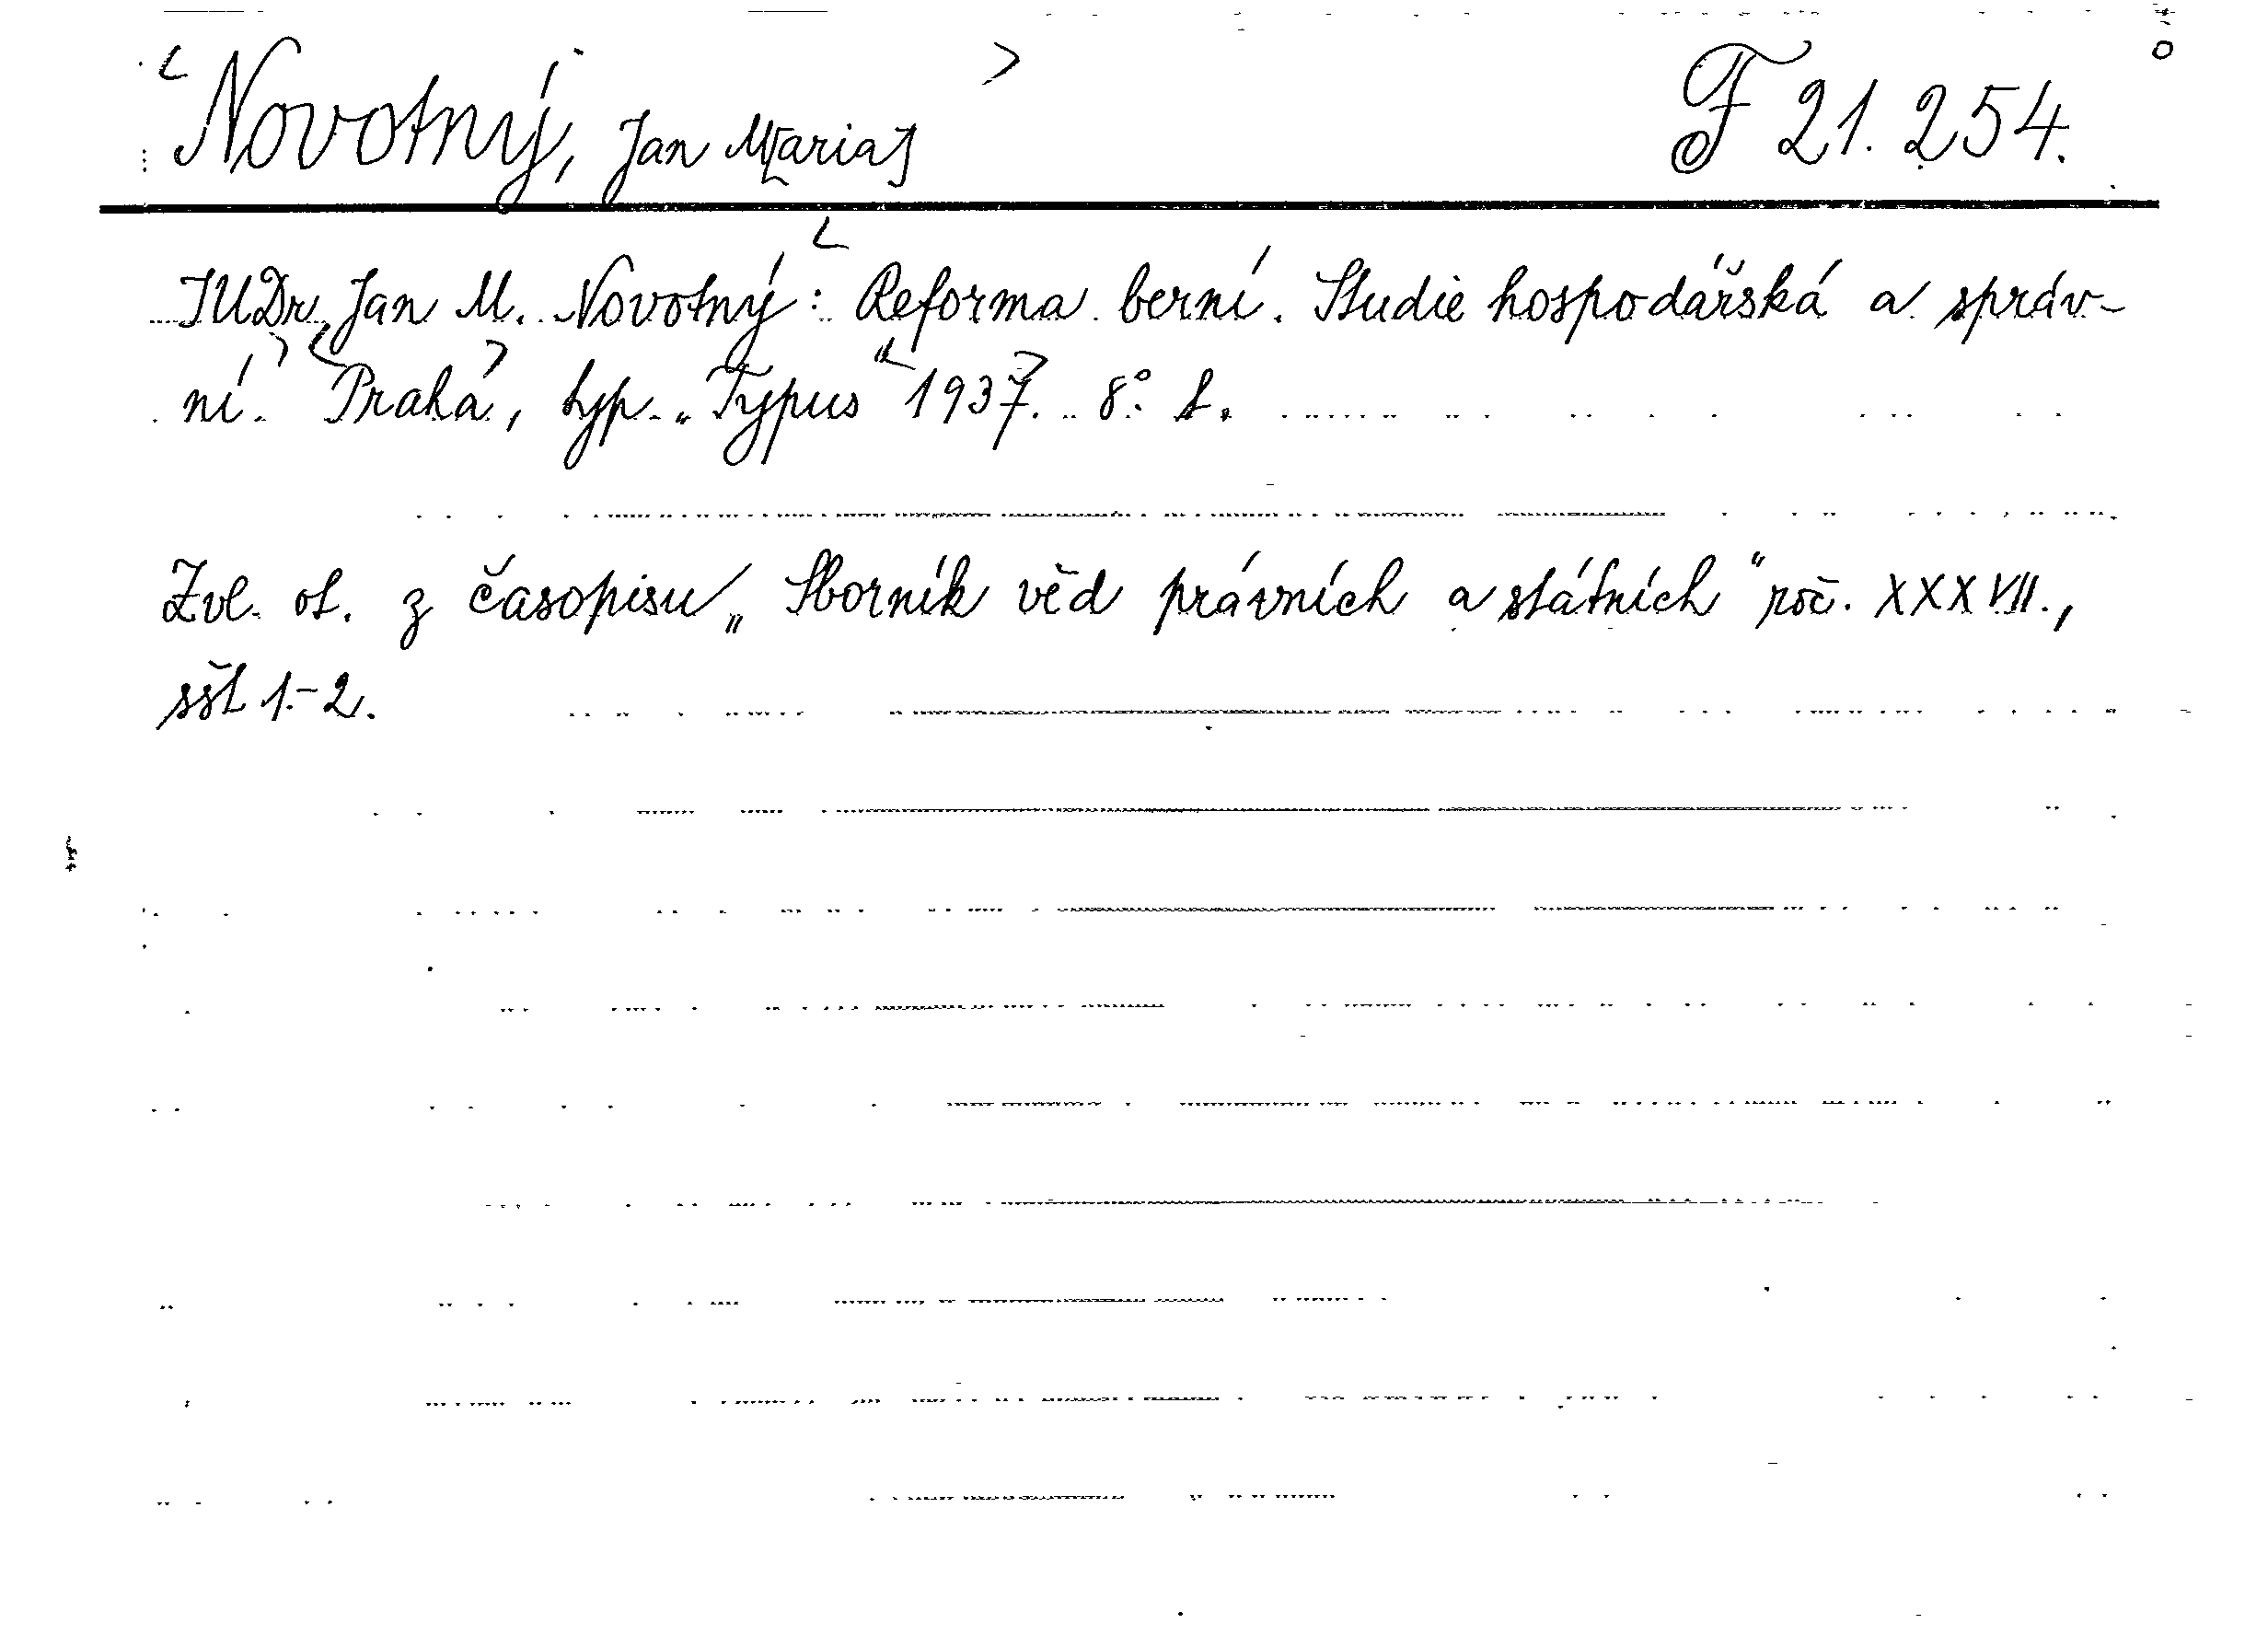 Novotný, Jan M[aria] F 21.254.
JUDr. Jan M. Novotný: Reforma berní. Studie hospodářská a správ-
ní. Praha, typ. „Typus“ 1937. 8° 1.
Zvl. ot. z časopisu „Sborník věd právních a státních“ roč. XXXVII.,
sšt 1.-2.